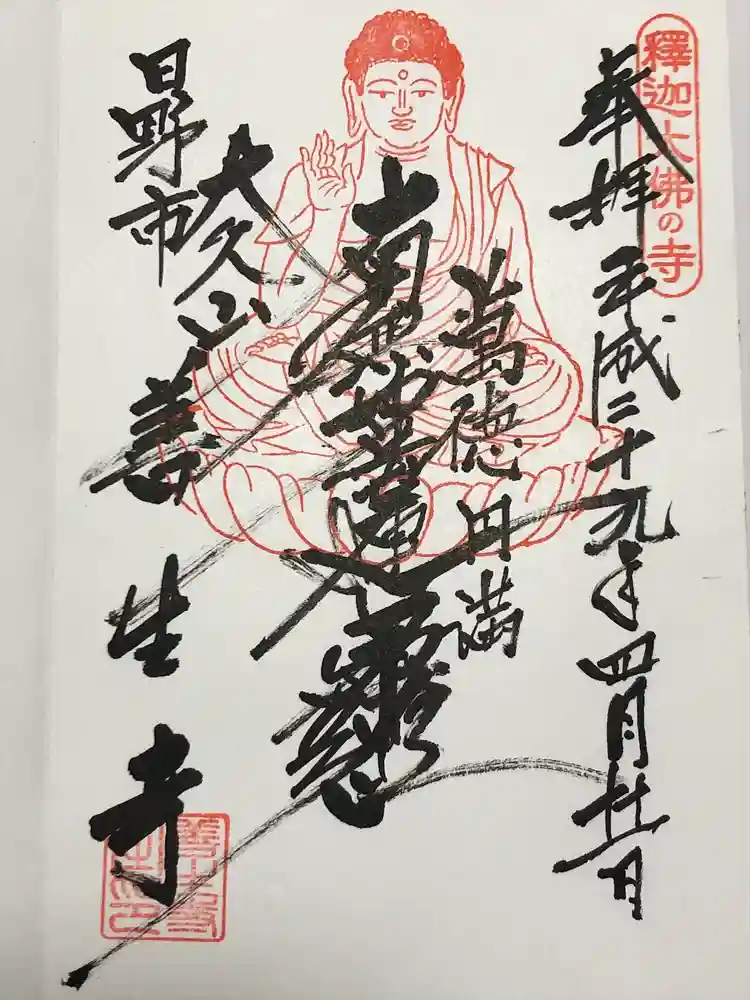 釋迦大佛の寺
奉拝 平成二十九年四月廿一日
萬徳円満
南無妙法蓮華経
日野市
大久山善生寺